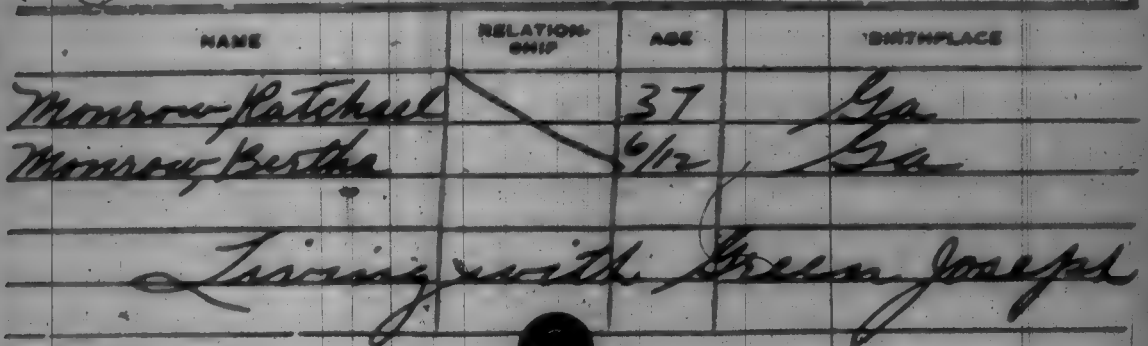 NAME RELATION-SHIP AGE BIRTHPLACE
Monrow, Ratchael 37 Ga
Monrow, Bertha 6/12 Ga
Living with Green Joseph